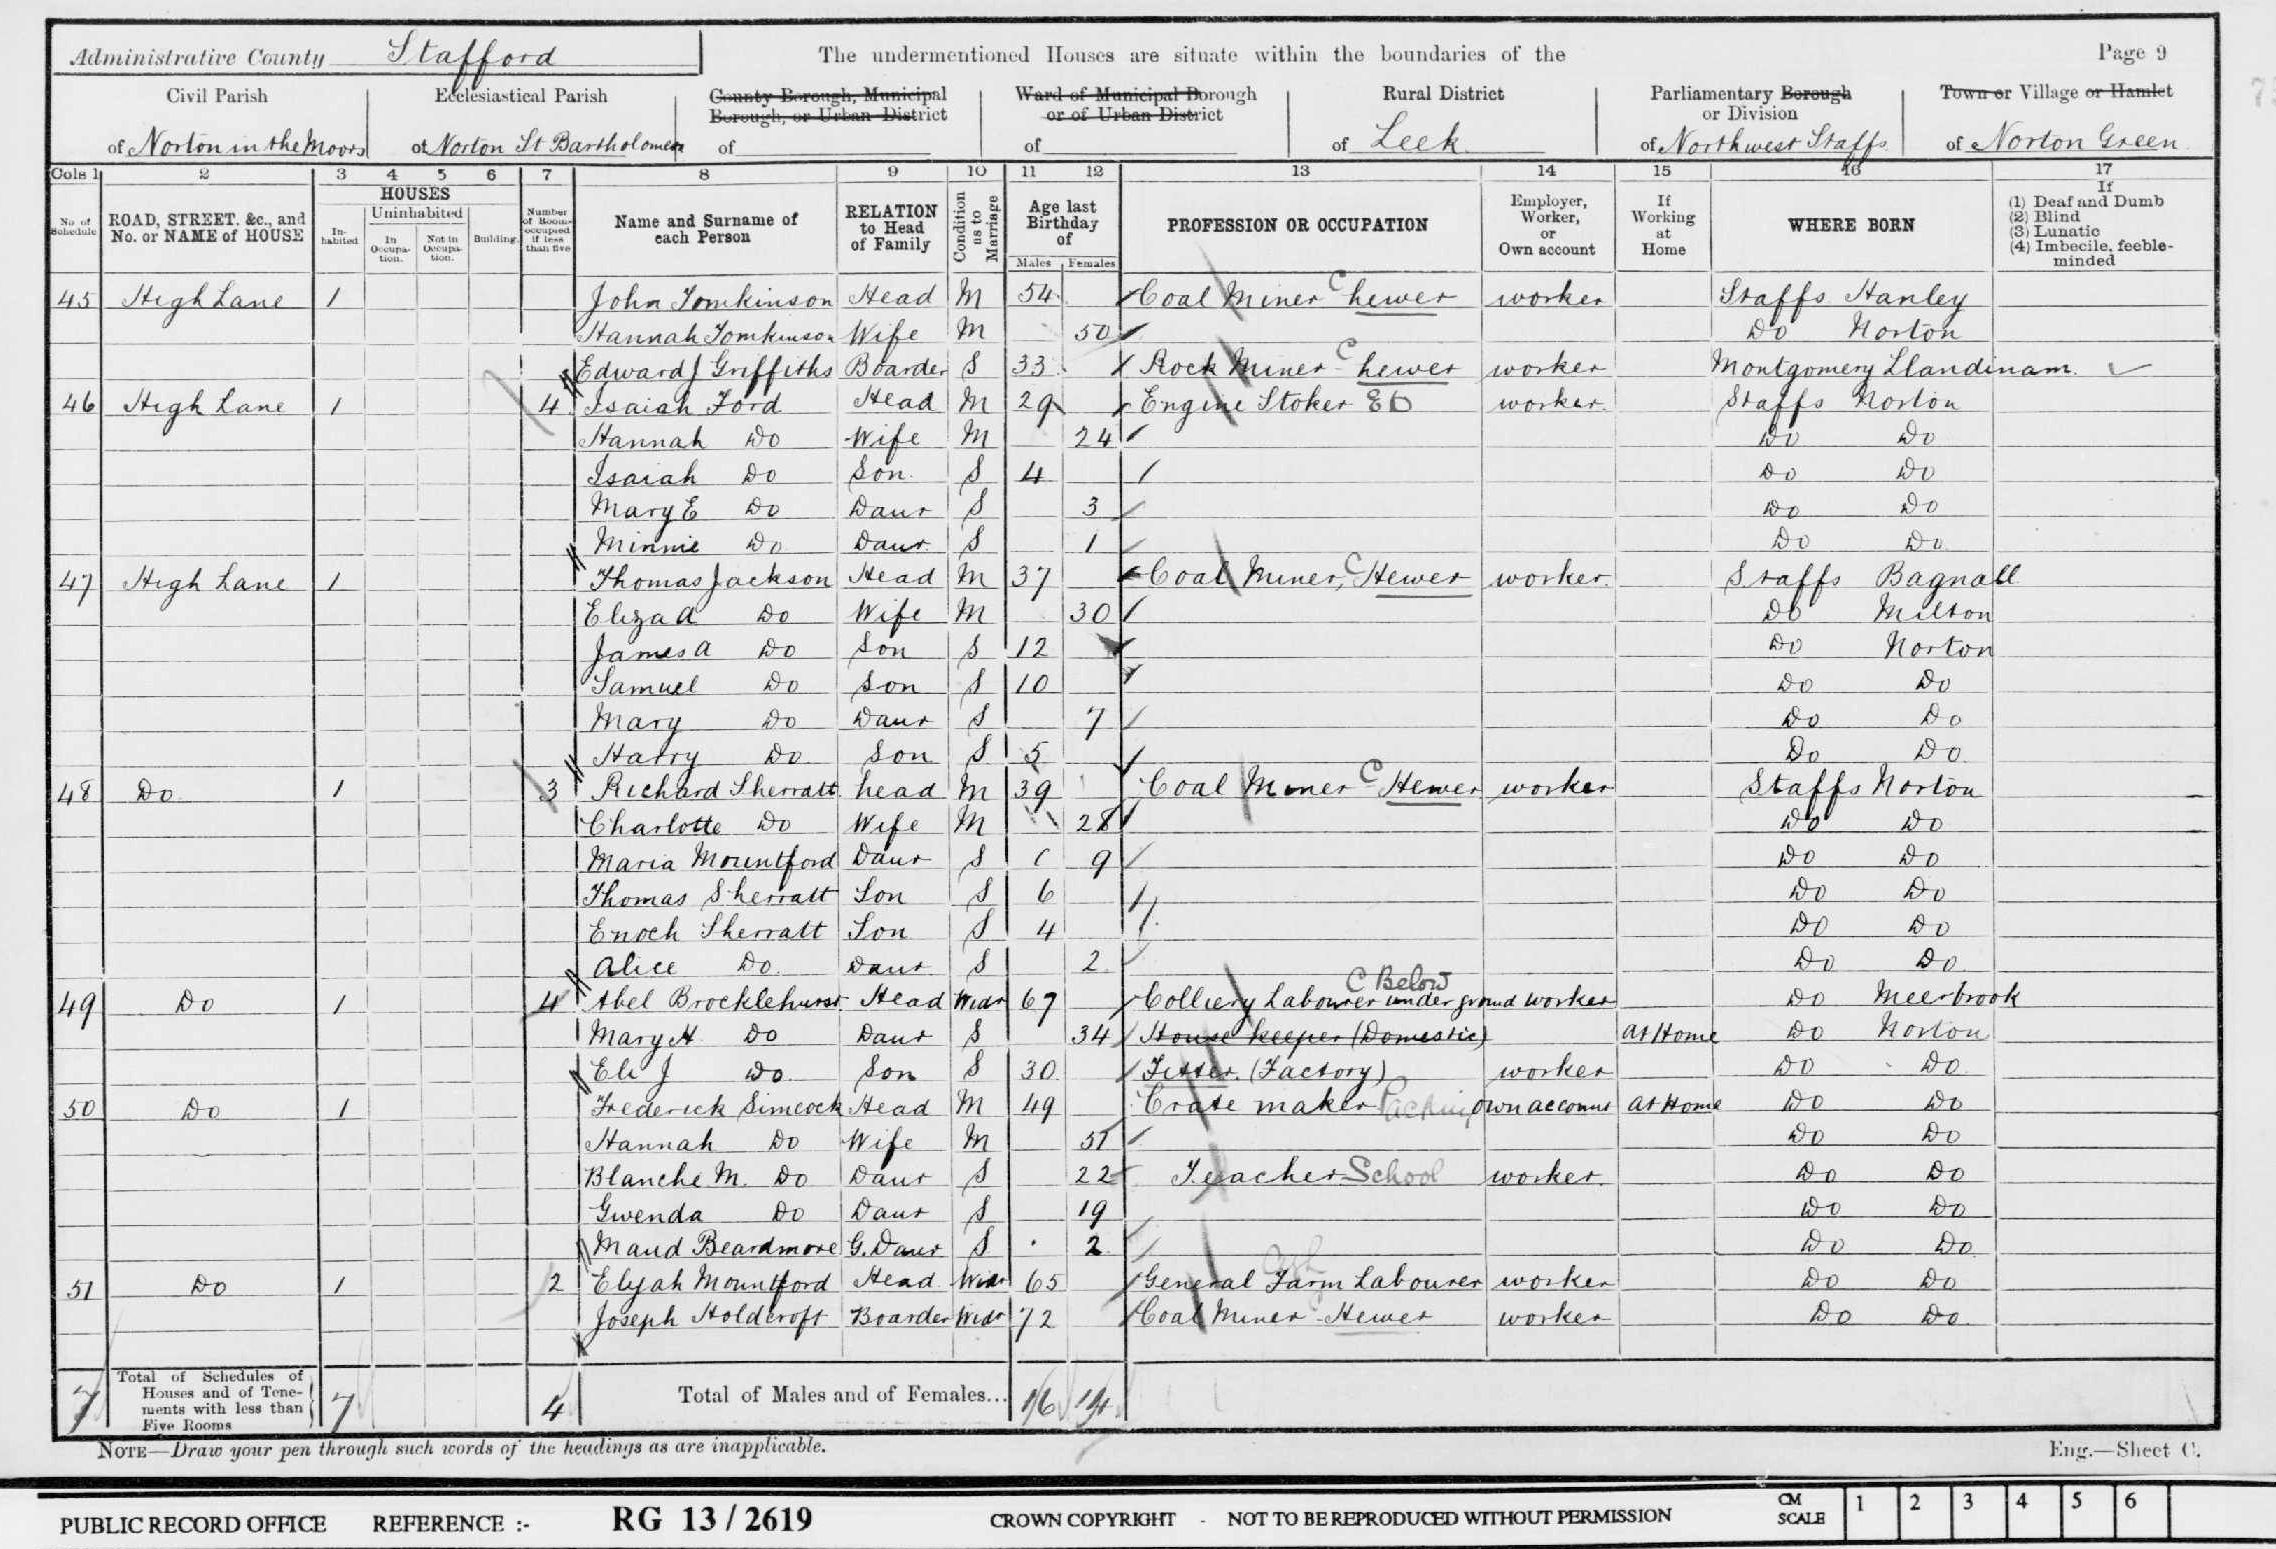 Administrative County Stafford The undermentioned Houses are situate within the boundaries of the Page 9
Civil Parish Ecclesiastical Parish County Borough, Municipal Borough, or Urban District Ward of Municipal Borough or of Urban District Rural District Parliamentary Borough or Division Town or Village or Hamlet
of Norton in the Moors of Norton St Bartholomew of of of Leek of Northwest Staffs of Norton Green
Cols 1 2 3 4 5 6 7 8 9 10 11 12 13 14 15 16 17
No. of Schedule ROAD, STREET, &c., and No. or NAME of HOUSE HOUSES Inhabited Uninhabited In Occupation. Not in Occupation. Building. Number of Rooms occupied if less than five Name and Surname of each Person RELATION to Head of Family Condition as to Marriage Age last Birthday of Males Females PROFESSION OR OCCUPATION Employer, Worker, or Own account If Working at Home WHERE BORN If (1) Deaf and Dumb (2) Blind (3) Lunatic (4) Imbecile, feeble-minded
45 High Lane 1 John Tomkinson Head M 54 Coal Miner C hewer worker Staffs Hanley
Hannah Tomkinson Wife M 50 Do Norton
Edward J Griffiths Boarder S 33 Rock Miner C hewer worker Montgomery Llandinam
46 High Lane 1 4 Isaiah Ford Head M 29 Engine Stoker worker Staffs Norton
Hannah Do Wife M 24 Do Do
Isaiah Do Son S 4 Do Do
Mary E Do Daur S 3 Do Do
Minnie Do Daur S 1 Do Do
47 High Lane 1 Thomas Jackson Head M 37 Coal Miner, C Hewer worker Staffs Bagnall
Eliza A Do Wife M 30 Do Milton
James A Do Son S 12 Do Norton
Samuel Do Son S 10 Do Do
Mary Do Daur S 7 Do Do
Harry Do Son S 5 Do Do
48 Do 1 3 Richard Sherratt head M 39 Coal Miner C Hewer worker Staffs Norton
Charlotte Do Wife M 28 Do Do
Maria Mountford Daur S 9 Do Do
Thomas Sherratt Son S 6 Do Do
Enoch Sherratt Son S 4 Do Do
Alice Do Daur S 2 Do Do
C Below
49 Do 1 4 Abel Brocklehurst Head Widr 67 Colliery Labourer underground worker Do Meerbrook
Mary H Do Daur S 34 House keeper (Domestic) At Home Do Norton
Eli J Do Son S 30 Fitter (Factory) worker Do Do
50 Do 1 Frederick Simcock Head M 49 Crate maker Packing own account At Home Do Do
Hannah Do Wife M 51 Do Do
Blanche M. Do Daur S 22 Teacher School worker Do Do
Gwenda Do Daur S 19 Do Do
Maud Beardmore G. Daur S 2 Do Do
51 Do 1 2 Elijah Mountford Head Widr 65 General Farm Labourer worker Do Do
Joseph Holdcroft Boarder Widr 72 Coal Miner Hewer worker Do Do
7 Total of Schedules of Houses and of Tenements with less than Five Rooms 7 4 Total of Males and of Females... 16 19
NOTE—Draw your pen through such words of the headings as are inapplicable. Eng.—Sheet C.
PUBLIC RECORD OFFICE REFERENCE :- RG 13 / 2619 CROWN COPYRIGHT - NOT TO BE REPRODUCED WITHOUT PERMISSION CM SCALE 1 2 3 4 5 6